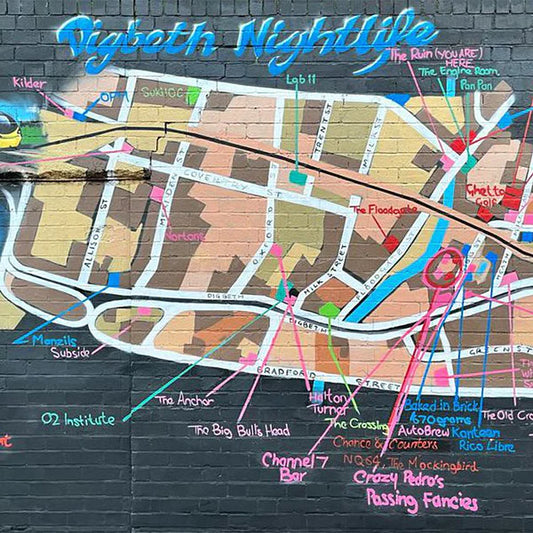 Digbeth Nightlife
The Ruin (YOU ARE)
HERE
The Engine Room
Pan Pan
Kilder
OPM
Suki10C
Lab 11
TRENT ST
MILK ST
COVENTRY ST
Ghetto
Golf
The Floodgate
Nortons
ALLISON ST
OXFORD
MILK STREET
DIGBETH
DIGBETH
GREEN ST
BRADFORD STREET
Monzils
Subside
The Anchor
Halton
Turner
O2 Institute
The Big Bulls Head
The Crossing
Baked in Brick
670 grams
AutoBrew
Kanteen
Rico Libre
The Old Cro
Chance & Counters
NQ64, The Mockingbird
Channel 7
Bar
Crazy Pedro's
Passing Fancies